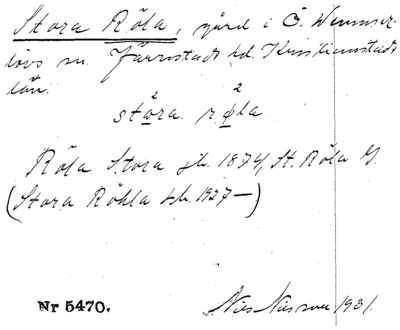 Stora Röla, gård i Ö. Vemmer-
lövs sn. Järrestads hd. Kristianstads
län.
stora røla
Röla Stora jb. 1874, St. Röla G.
(Stora Röhla jb. 1927—)
Nr 5470. Nils Nilsson 1931.